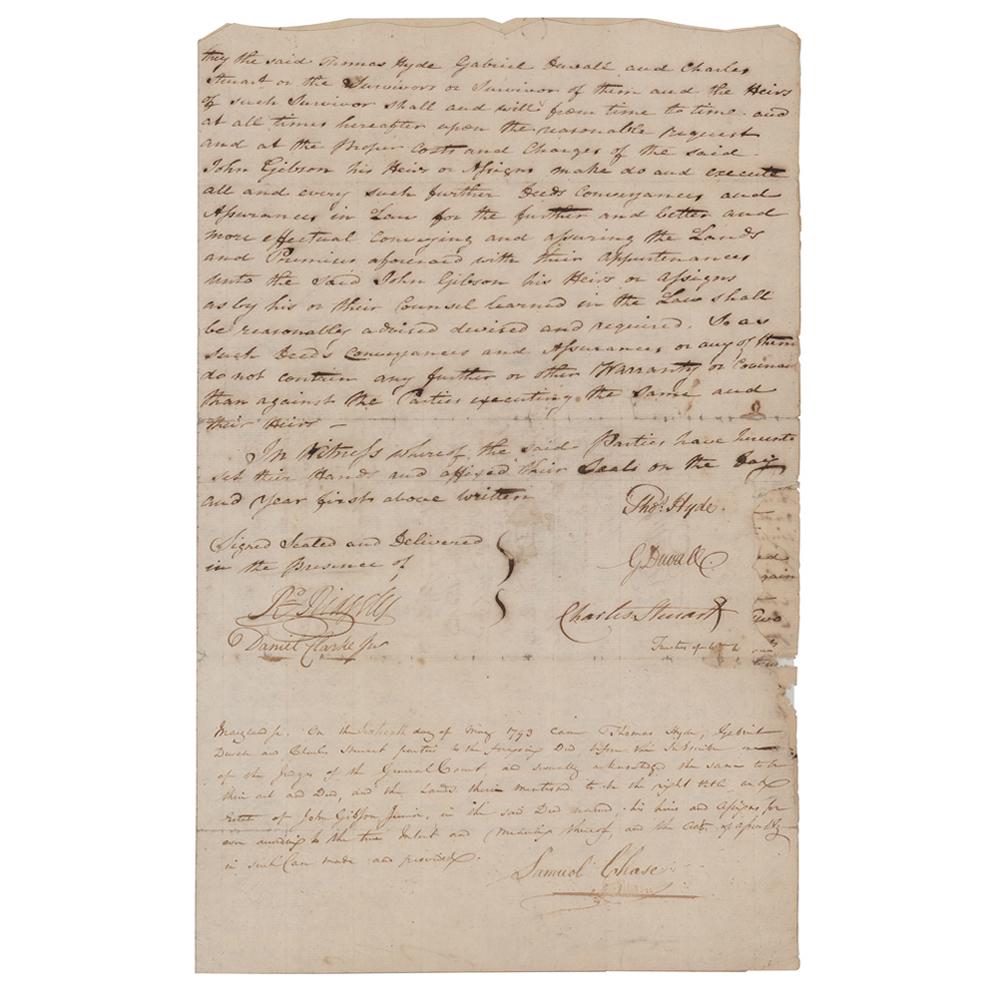 they the said Thomas Hyde Gabriel Duvall and Charles
Steuart or the Survivors or Survivor of them and the Heirs
of such Survivor shall and will from time to time and
at all times hereafter upon the reasonable request
and at the Proper Costs and Charges of the said
John Gibson his Heirs or Assigns make do and execute
all and every such further Deeds Conveyances and
Assurances in Law for the further and better and
more effectual conveying and assuring the Lands
and Premises aforesaid with their appurtenances
unto the said John Gibson his Heirs or assigns
as by his or their Counsel learned in the Law shall
be reasonably advised devised and required. So as
such Deeds Conveyances and Assurances or any of them
do not contain any further or other Warranty or Covenant
than against the Parties executing the Same and
their Heirs —
In Witness whereof the said Parties have hereunto
set their Hands and affixed their Seals on the Day
and Year first above Written
Thos. Hyde.
Signed Sealed and Delivered
in the Presence of
G Duvall
Charles Steuart
Daniel Clarke Jnr
Trustees
Maryland Sc. On the sixteenth day of May 1793 came Thomas Hyde, Gabriel
Duvall and Charles Steuart parties to the foregoing Deed, before the Subscriber one
of the Judges of the General Court, and severally acknowledged the same to be
their act and Deed, and the Lands therein mentioned to be the right title and
Estate of John Gibson Junior, in the said Deed named, his heirs and Assigns, for
ever according to the true Intent and Meaning thereof, and the Acts of Assembly
in such Case made and provided.
Samuel Chase